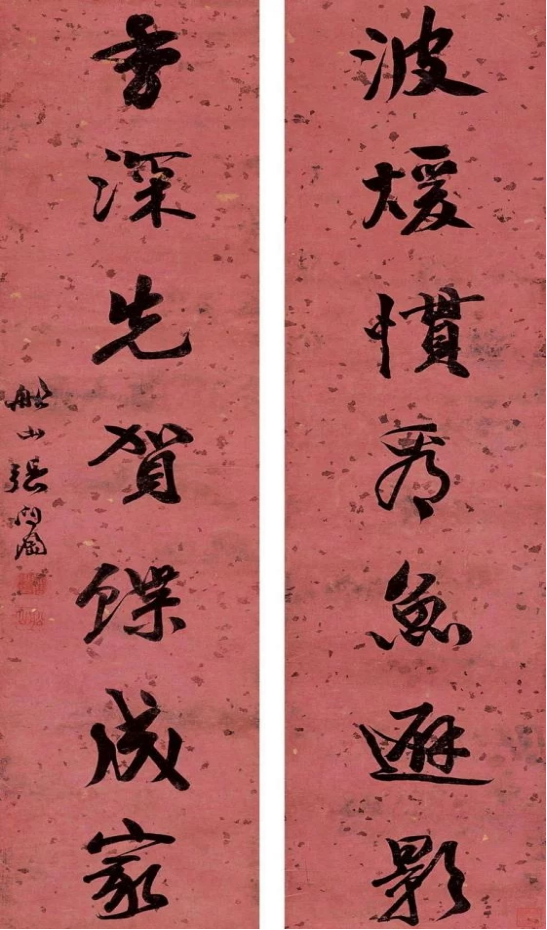 波煖慣看魚避影
芳深先賀蝶成家
船山張問陶